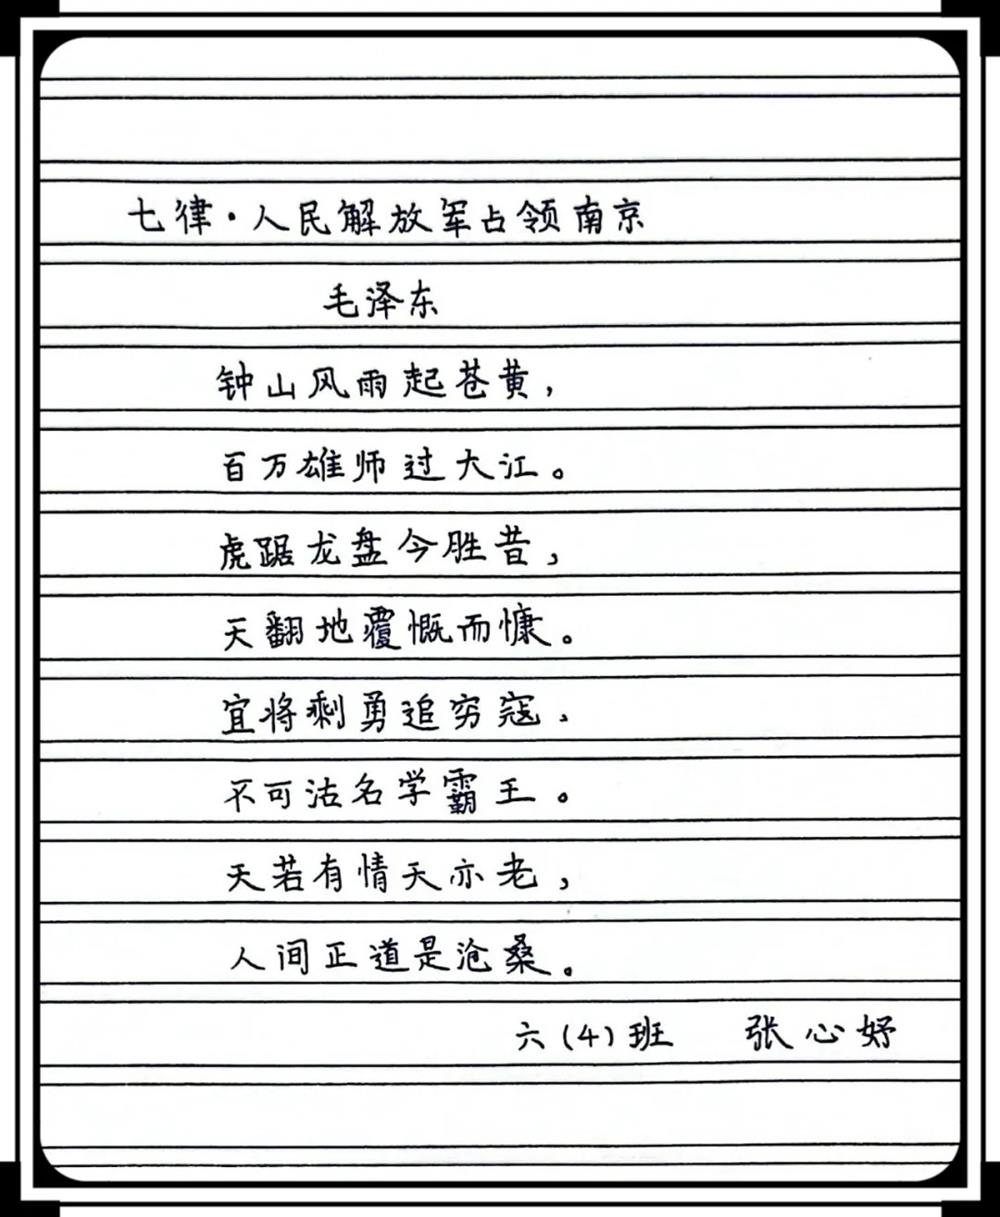 七律·人民解放军占领南京
毛泽东
钟山风雨起苍黄,
百万雄师过大江。
虎踞龙盘今胜昔,
天翻地覆慨而慷。
宜将剩勇追穷寇,
不可沽名学霸王。
天若有情天亦老,
人间正道是沧桑。
六(4)班 张心妤